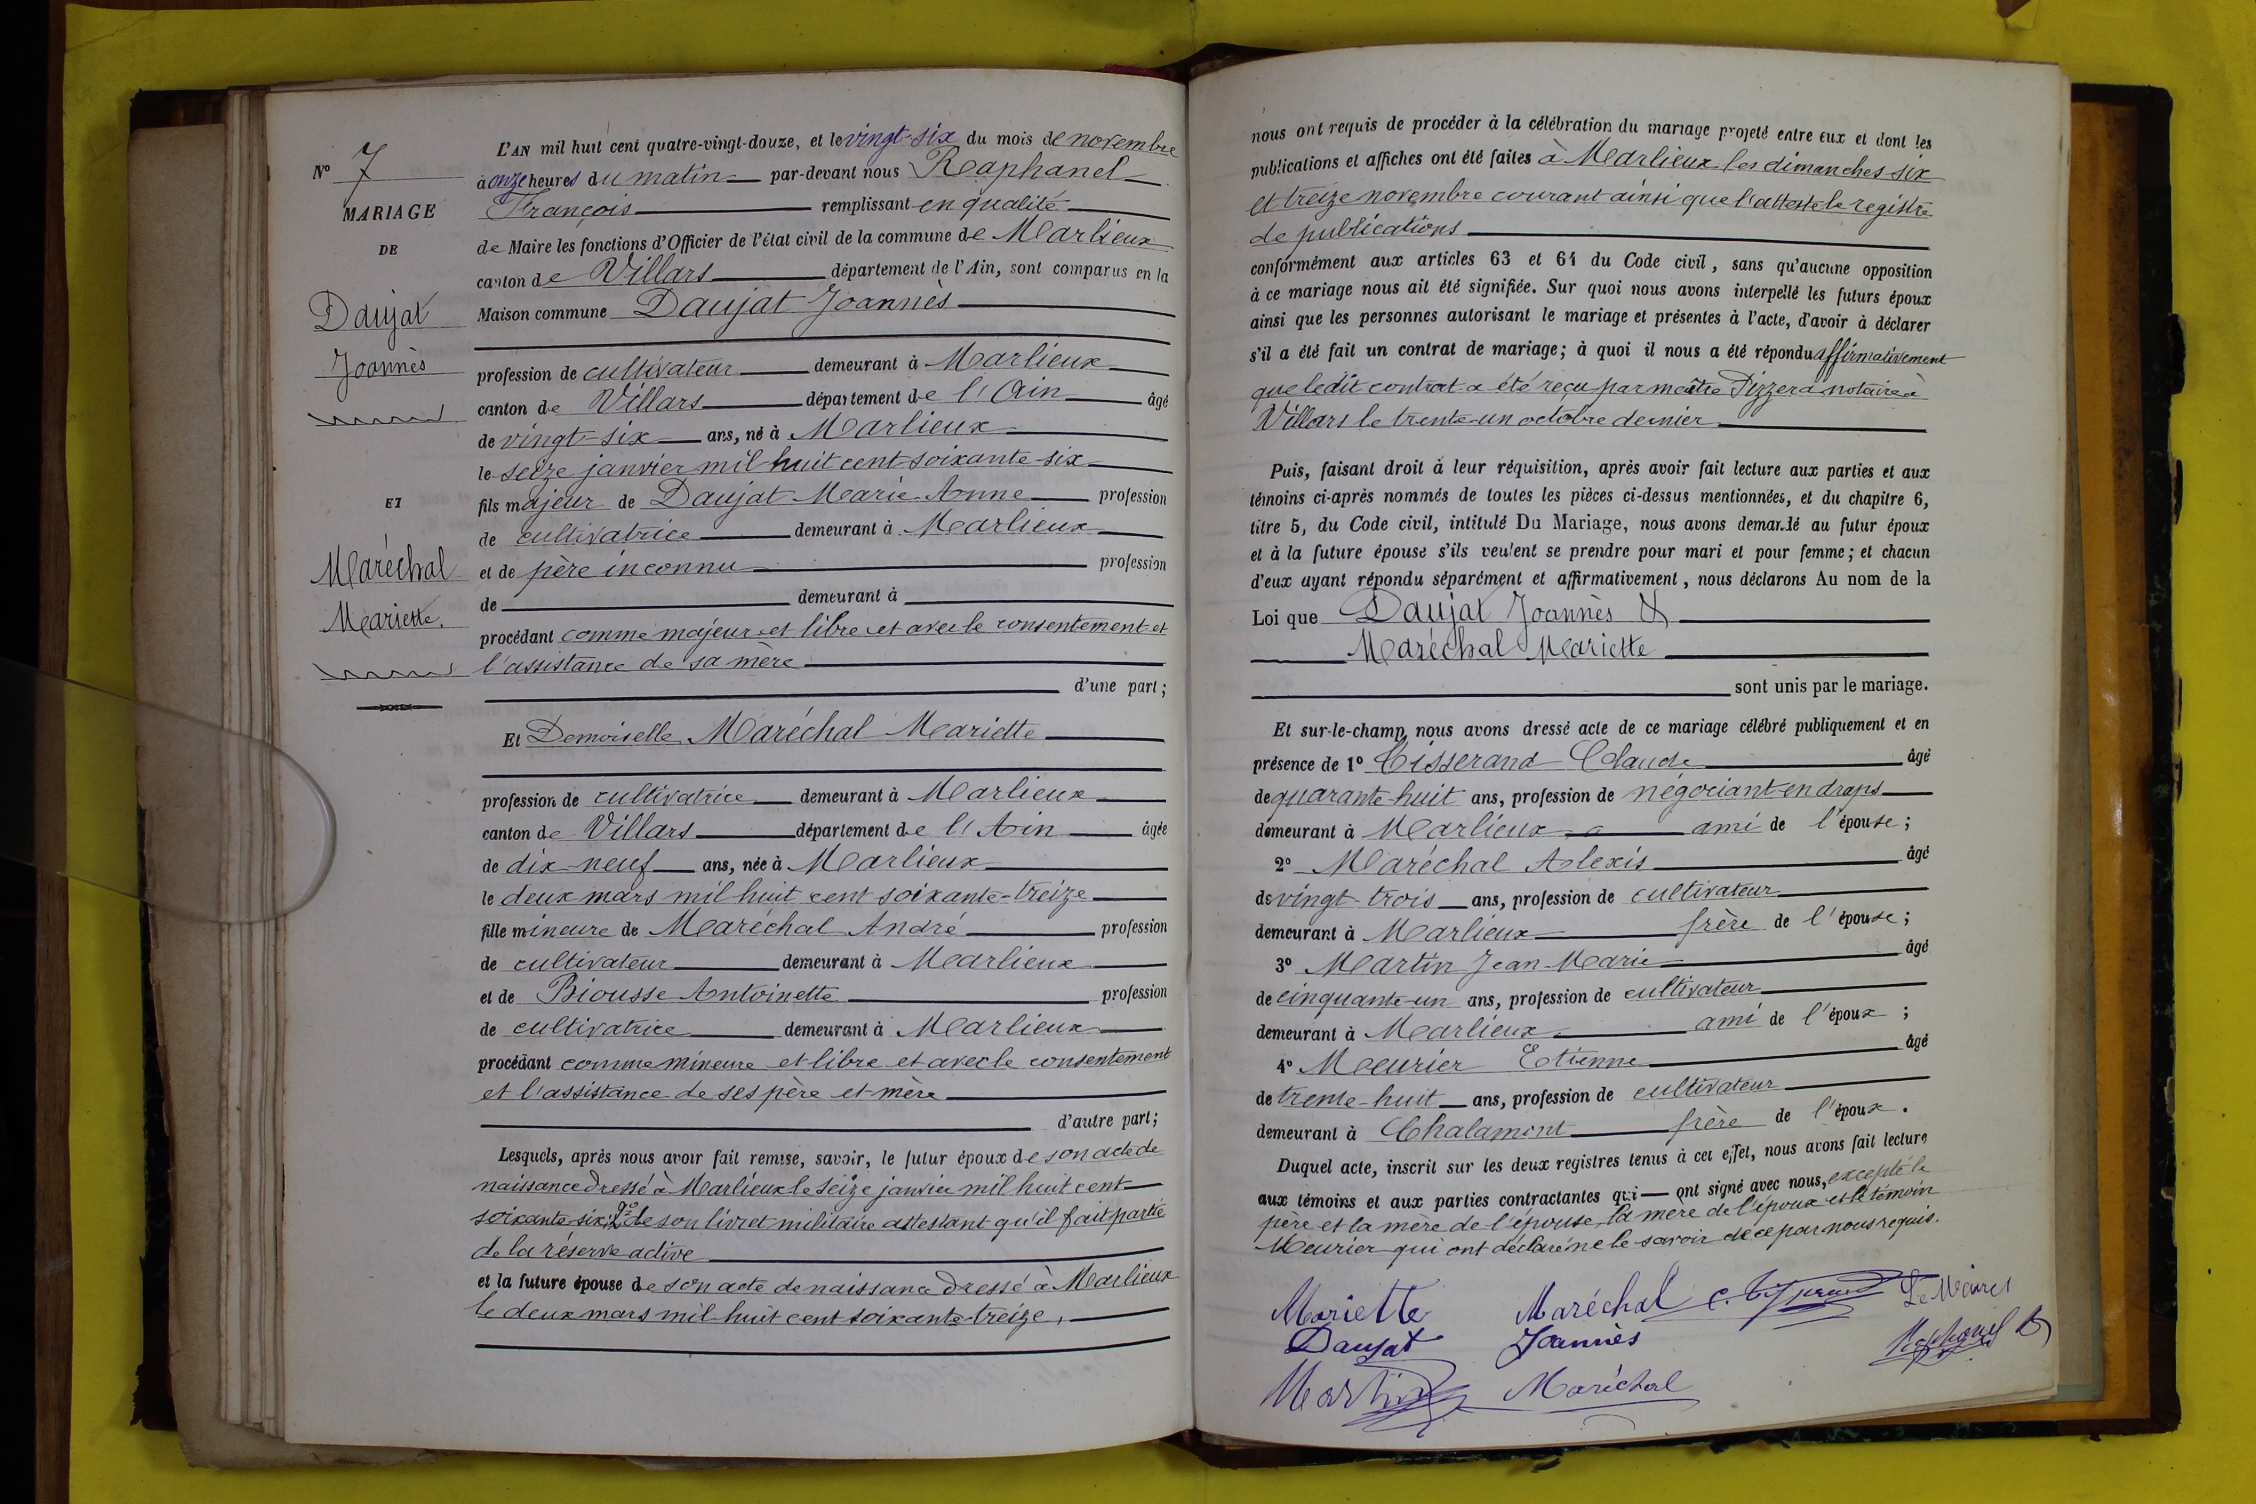 N° 7
MARIAGE
DE
Daujat
Joannès
ET
Maréchal
Mariette.
L'AN mil huit cent quatre-vingt-douze, et le vingt-six du mois de novembre
à onze heures du matin par-devant nous Raphanel
François remplissant en qualité
de Maire les fonctions d'Officier de l'état civil de la commune de Marlieux
canton de Villars département de l'Ain, sont comparus en la
Maison commune Daujat Joannès
profession de cultivateur demeurant à Marlieux
canton de Villars département de l'Ain âgé
de vingt-six ans, né à Marlieux
le seize janvier mil huit cent soixante-six
fils majeur de Daujat Marie Anne profession
de cultivatrice demeurant à Marlieux
et de père inconnu profession
de demeurant à
procédant comme majeur et libre et avec le consentement et
l'assistance de sa mère
d'une part;
Et Demoiselle Maréchal Mariette
profession de cultivatrice demeurant à Marlieux
canton de Villars département de l'Ain âgée
de dix-neuf ans, née à Marlieux
le deux mars mil huit cent soixante-treize
fille mineure de Maréchal André profession
de cultivateur demeurant à Marlieux
et de Biousse Antoinette profession
de cultivatrice demeurant à Marlieux
procédant comme mineure et libre et avec le consentement
et l'assistance de ses père et mère
d'autre part;
Lesquels, après nous avoir fait remise, savoir, le futur époux de son acte de
naissance dressé à Marlieux le seize janvier mil huit cent
soixante-six; 2° de son livret militaire attestant qu'il fait partie
de la réserve active
et la future épouse de son acte de naissance dressé à Marlieux
le deux mars mil huit cent soixante-treize,
nous ont requis de procéder à la célébration du mariage projeté entre eux et dont les
publications et affiches ont été faites à Marlieux les dimanches six
et treize novembre courant ainsi que l'atteste le registre
de publications
conformément aux articles 63 et 64 du Code civil, sans qu'aucune opposition
à ce mariage nous ait été signifiée. Sur quoi nous avons interpellé les futurs époux
ainsi que les personnes autorisant le mariage et présentes à l'acte, d'avoir à déclarer
s'il a été fait un contrat de mariage; à quoi il nous a été répondu affirmativement
que ledit contrat a été reçu par maître Pizzera notaire à
Villars le trente-un octobre dernier
Puis, faisant droit à leur réquisition, après avoir fait lecture aux parties et aux
témoins ci-après nommés de toutes les pièces ci-dessus mentionnées, et du chapitre 6,
titre 5, du Code civil, intitulé Du Mariage, nous avons demandé au futur époux
et à la future épouse s'ils veulent se prendre pour mari et pour femme; et chacun
d'eux ayant répondu séparément et affirmativement, nous déclarons Au nom de la
Loi que Daujat Joannès &
Maréchal Mariette
sont unis par le mariage.
Et sur-le-champ nous avons dressé acte de ce mariage célébré publiquement et en
présence de 1° Tisserand Claude âgé
de quarante-huit ans, profession de négociant en draps
demeurant à Marlieux ami de l'épouse;
2° Maréchal Alexis âgé
de vingt-trois ans, profession de cultivateur
demeurant à Marlieux frère de l'épouse;
3° Martin Jean-Marie âgé
de cinquante-un ans, profession de cultivateur
demeurant à Marlieux ami de l'époux;
4° Meurier Etienne âgé
de trente-huit ans, profession de cultivateur
demeurant à Chalamont frère de l'époux.
Duquel acte, inscrit sur les deux registres tenus à cet effet, nous avons fait lecture
aux témoins et aux parties contractantes qui ont signé avec nous, excepté le
père et la mère de l'épouse, la mère de l'époux et le témoin
Meurier qui ont déclaré ne le savoir de ce par nous requis.
Mariette Maréchal C. Tisserand Le Maire
Daujat Joannès Raphanel
Martin Maréchal